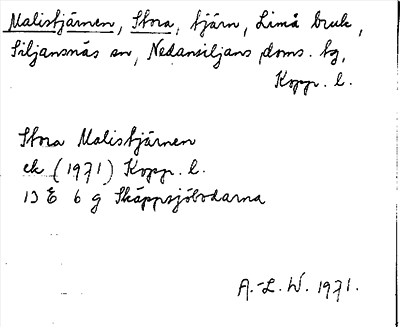 Malistjärnen, Stora, tjärn, Limå bruk,
Siljansnäs sn, Nedansiljans doms. tg,
Kopp. l.
Stora Malistjärnen
ek (1971) Kopp. l.
13 E 6 g Skäppsjöbodarna
A.-L. W. 1971.